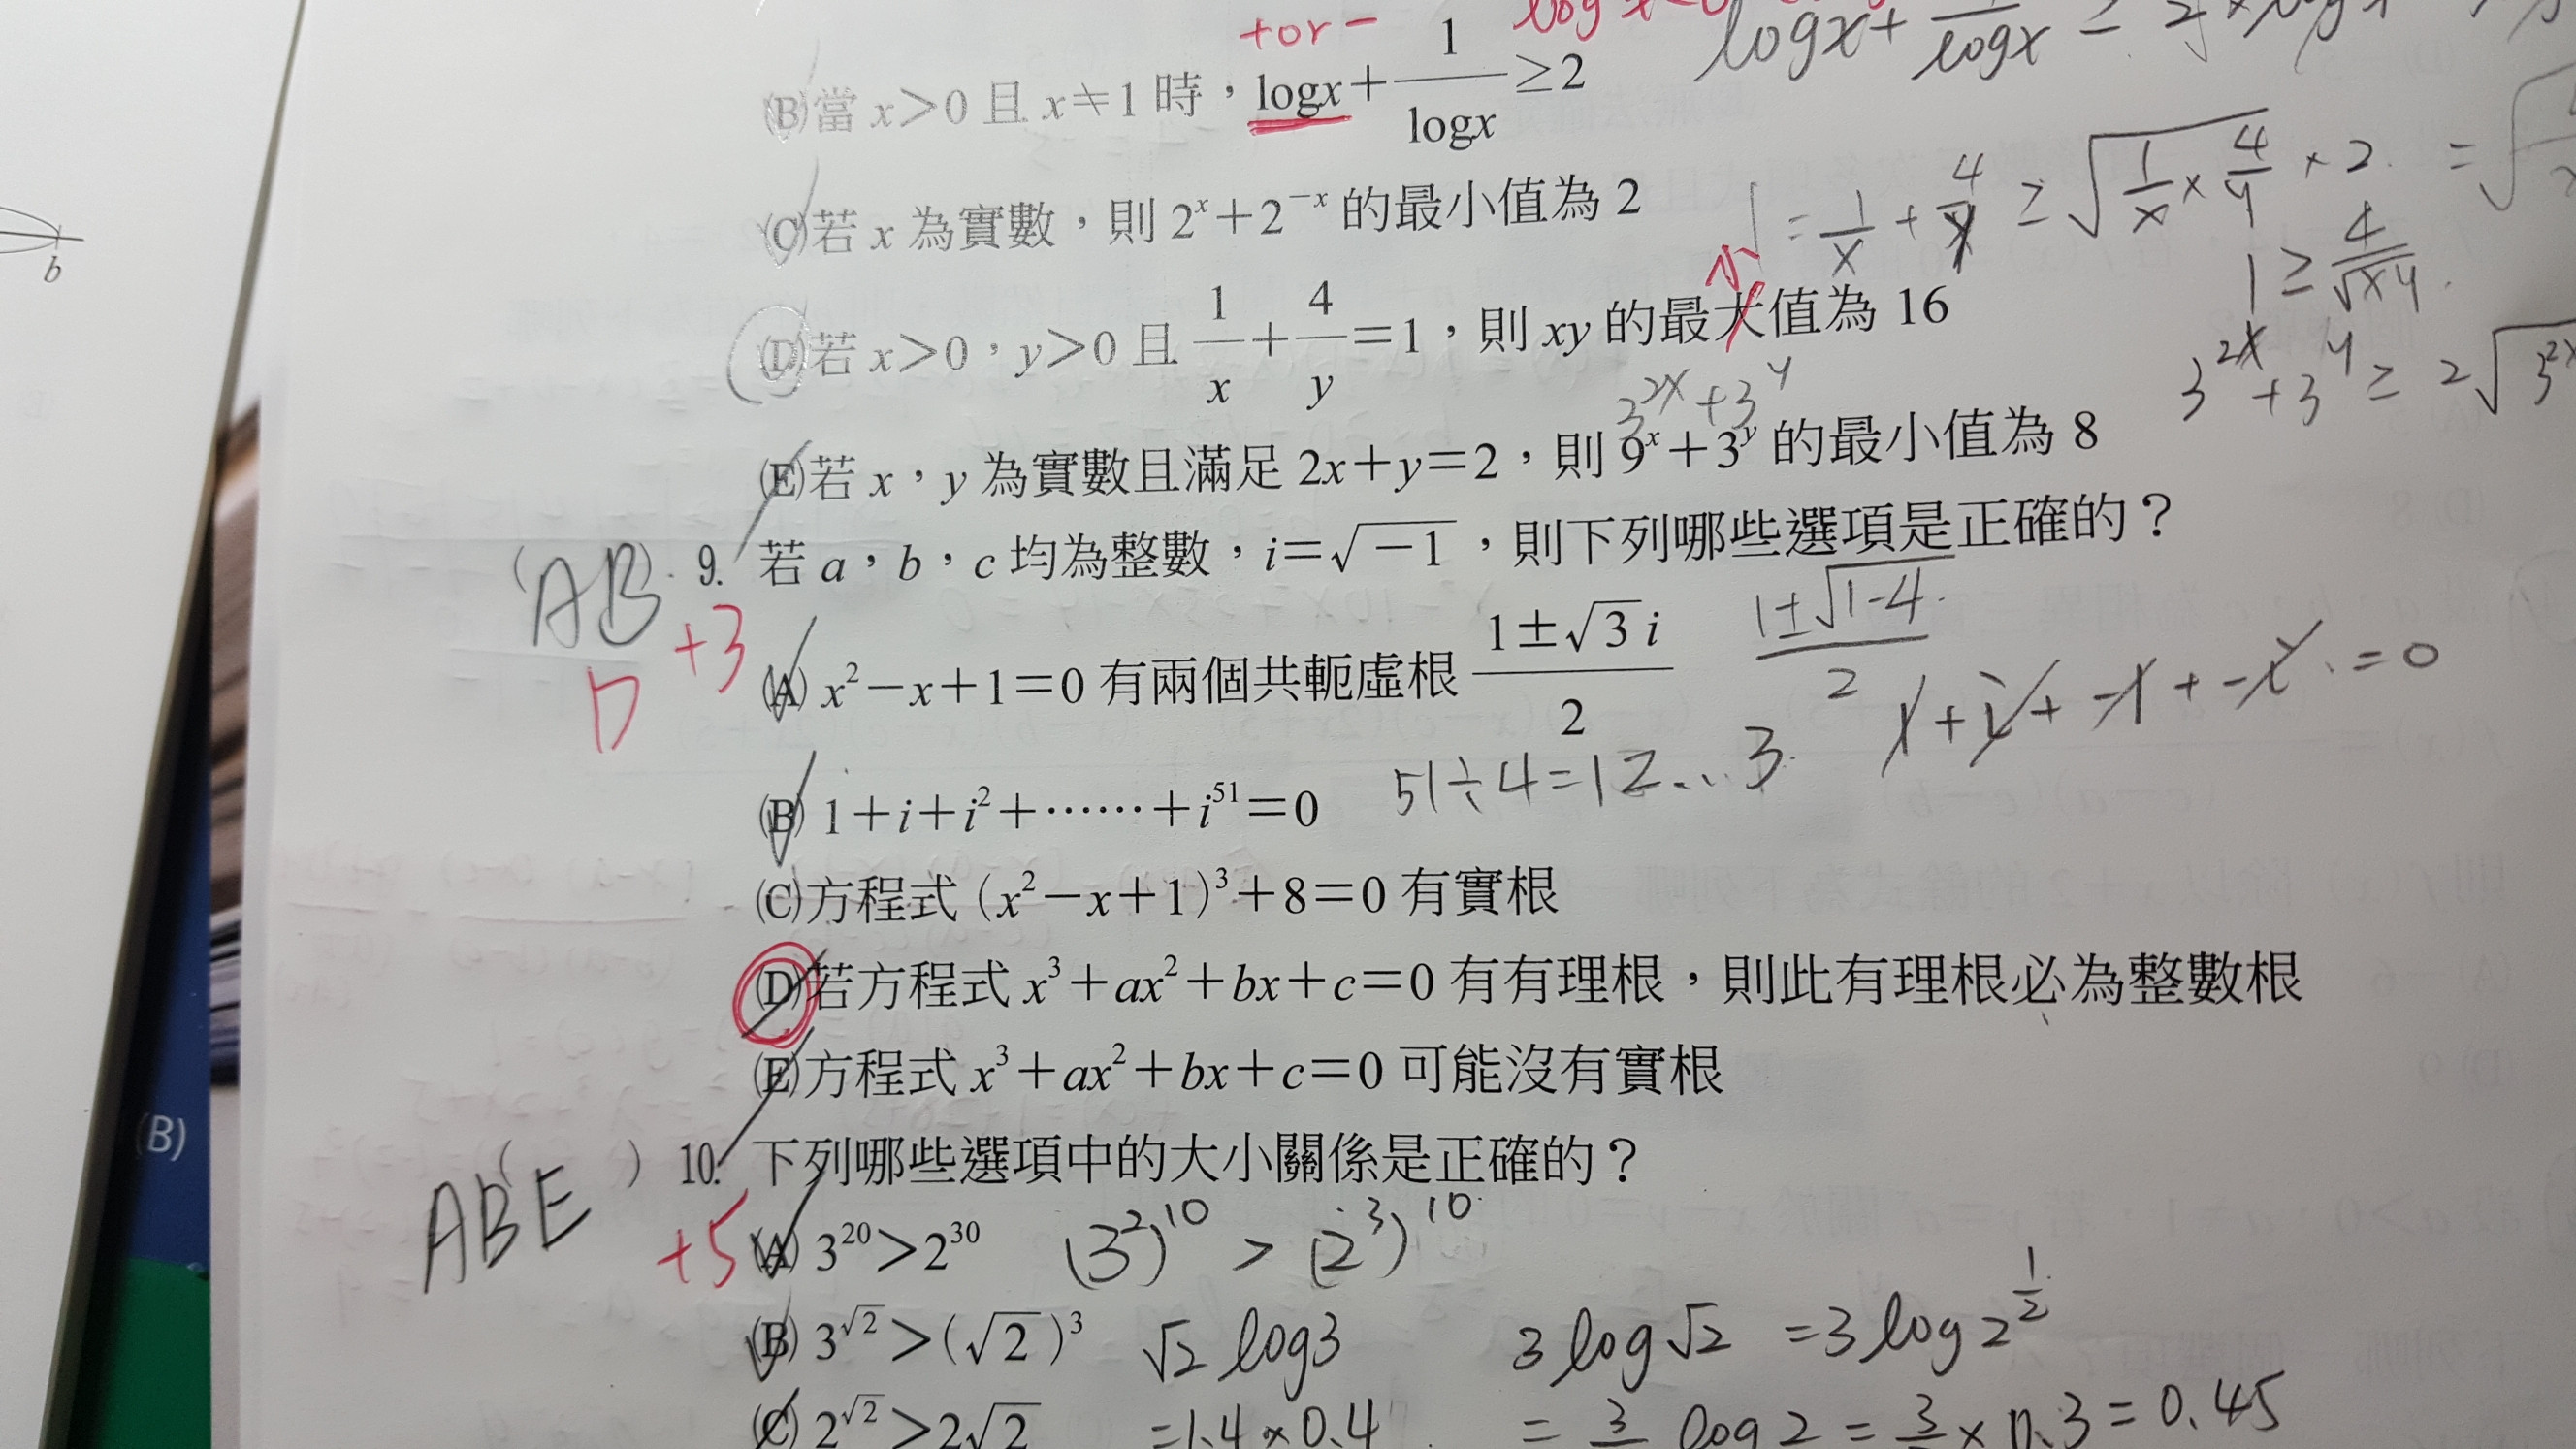 +or−
logx+ 1/logx ≥ 2
(B)當 x>0 且 x≠1 時，logx+1/logx≥2
(C)若 x 為實數，則 2^x+2^−x 的最小值為 2
1 = 1/x + 4/y ≥ √(1/x × 4/y) × 2 =
1 ≥ 4/√xy
小
(D)若 x>0，y>0 且 1/x+4/y=1，則 xy 的最大值為 16
3^2x+3^y
3^2x+3^y ≥ 2√3^2x
(E)若 x，y 為實數且滿足 2x+y=2，則 9^x+3^y 的最小值為 8
(AB) 9. 若 a，b，c 均為整數，i=√−1，則下列哪些選項是正確的？
D +3
(A) x^2−x+1=0 有兩個共軛虛根 (1±√3 i)/2
(1±√1-4)/2
1+i+-1+-i=0
(B) 1+i+i^2+⋯⋯+i^51=0
51÷4=12...3
(C)方程式 (x^2−x+1)^3+8=0 有實根
(D)若方程式 x^3+ax^2+bx+c=0 有有理根，則此有理根必為整數根
(E)方程式 x^3+ax^2+bx+c=0 可能沒有實根
(ABE) 10. 下列哪些選項中的大小關係是正確的？
+5
(A) 3^20>2^30 (3^2)^10 > (2^3)^10
(B) 3^√2>(√2)^3 √2 log3 3log√2 =3log2^1/2
(C) 2^√2>2√2 =1.4×0.4 = 3/ log2 = 3/ ×0.3=0.45
b
(B)